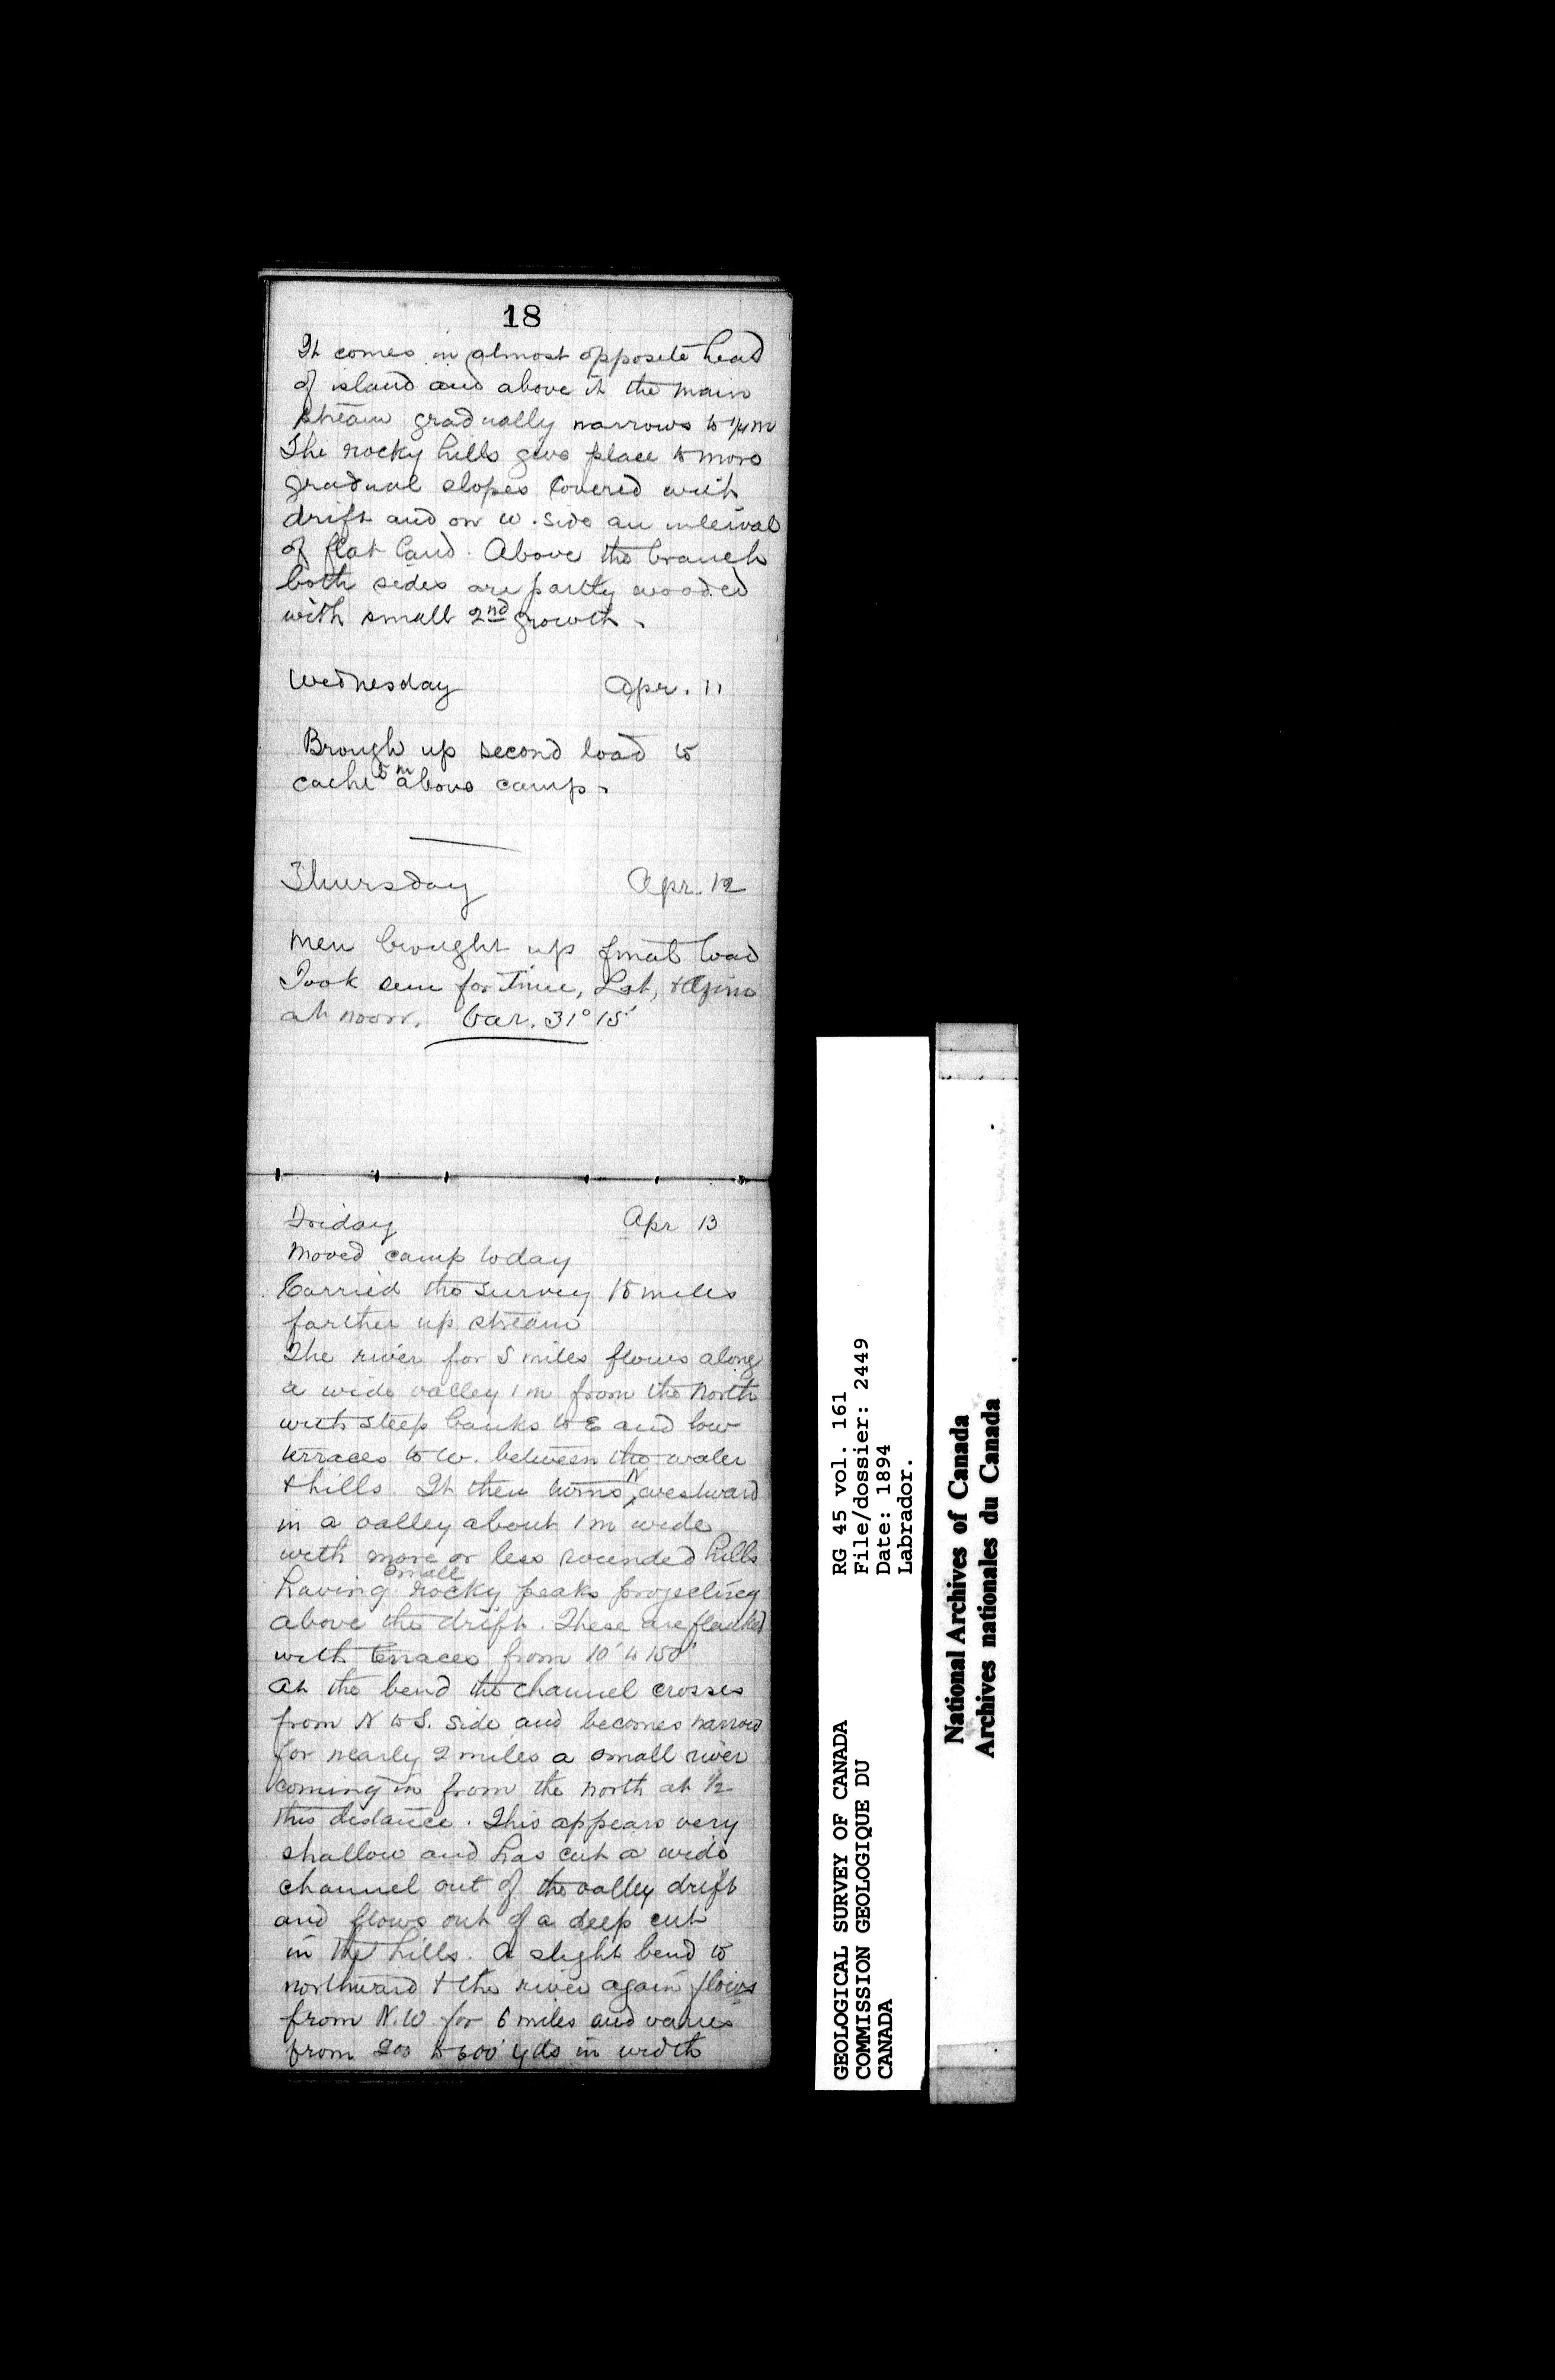 18
It comes in almost opposite head
of island and above it the main
stream gradually narrows to 1/4 m
The rocky hills give place to more
gradual slopes covered with
drift and on W. side an interval
of flat land. Above the branch
both sides are partly wooded
with small 2nd growth.
Wednesday Apr. 11
Brough up second load to
cache 5 m above camp.
Thursday Apr. 12
Men brought up final load
Took sun for Time, Lat, & Azim
at noon. Var. 31° 15'
Friday Apr 13
Moved camp today
Carried the survey 15 miles
farther up stream
The river for 5 miles flows along
a wide valley 1 m from the North
with steep banks to E and low
terraces to W. between the water
& hills. It then turns N westward
in a valley about 1 m wide
with more or less rounded hills
having small rocky peaks projecting
above the drift. These are flanked
with terraces from 10' to 150'
At the bend the channel crosses
from N to S. side and becomes narrow
for nearly 2 miles a small river
coming in from the north at 1/2
this distance. This appears very
shallow and has cut a wide
channel out of the valley drift
and flows out of a deep cut
in the hills. A slight bend to
northward & the river again flows
from N.W for 6 miles and varies
from 200 to 600 yds in width
GEOLOGICAL SURVEY OF CANADA
COMMISSION GEOLOGIQUE DU
CANADA
RG 45 vol. 161
File/dossier: 2449
Date: 1894
Labrador.
National Archives of Canada
Archives nationales du Canada